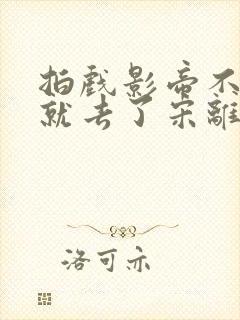 拍戏影帝不
就去了宋離
洛可亦